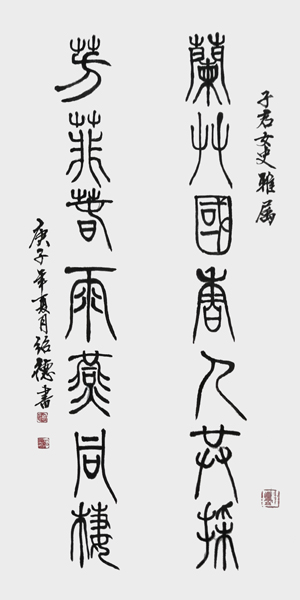 子君女史雅属
蘭艸國香人共採
芳菲萅雨燕同棲
庚子年夏月紹德書